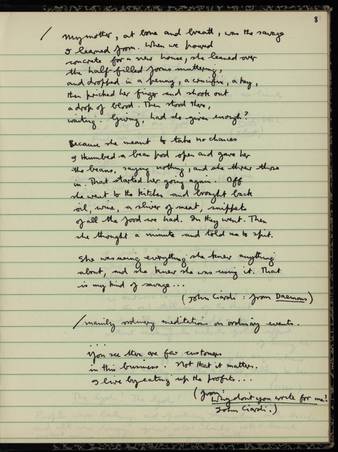 8
/ My mother, at bone and breath, was the savage
I learned from. When we poured
concrete for a new house, she leaned over
the half-filled forms muttering,
and dropped in a penny, a crucifix, a key,
then pricked her finger and shook out
a drop of blood. Then stood there,
waiting. Giving, had she given enough?
Because she meant to take no chances
I thumbed a bean pod open and gave her
the beans, saying nothing, and she threw those
in. That started her going again. Off
she went to the kitchen and brought back
oil, wine, a sliver of meat, snippets
of all the food we had. In they went. Then
she thought a minute and told me to spit.
She was using everything she knew anything
about, and she knew she was using it. That
is my kind of savage...
(John Ciardi: from Daemons)
/ mainly ordinary meditations on ordinary events.
...
You see there are few customers
in this business. Not that it matters.
I live by eating up the profits...
(from
Why don't you work for me!
John Ciardi.)